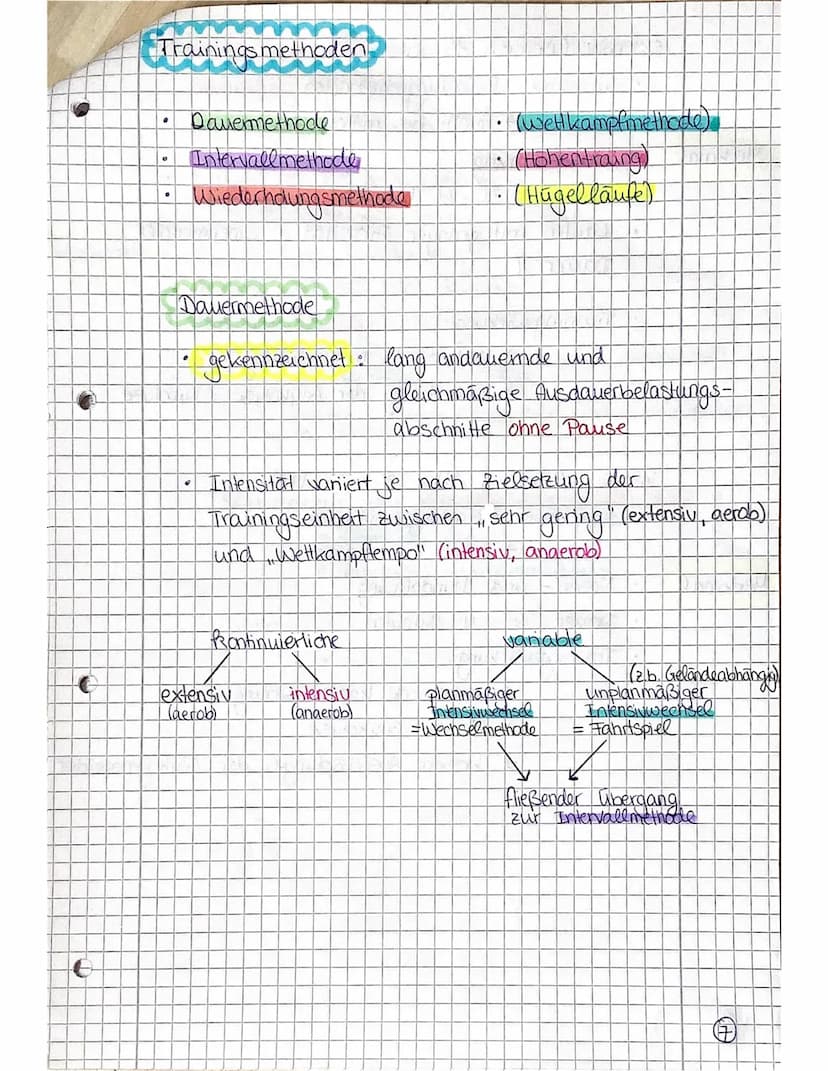 Trainingsmethoden
• Dauermethode
• Intervallmethode
• Wiederholungsmethode
• (Wettkampfmethode)
• (Höhentraing)
• (Hügelläufe)
Dauermethode
• gekennzeichnet: lang andauernde und
gleichmäßige Ausdauerbelastungs-
abschnitte ohne Pause
• Intensität variiert je nach Zielsetzung der
Trainingseinheit zwischen „sehr gering" (extensiv, aerob)
und „Wettkampftempo" (intensiv, anaerob)
Kontinuierliche
extensiv
(aerob)
intensiv
(anaerob)
variable
planmäßiger
Intensivwechsel
=Wechselmethode
(z.b. Geländeabhängig)
unplanmäßiger
Intensivwechsel
= Fahrtspiel
fließender Übergang
zur Intervallmethode
7